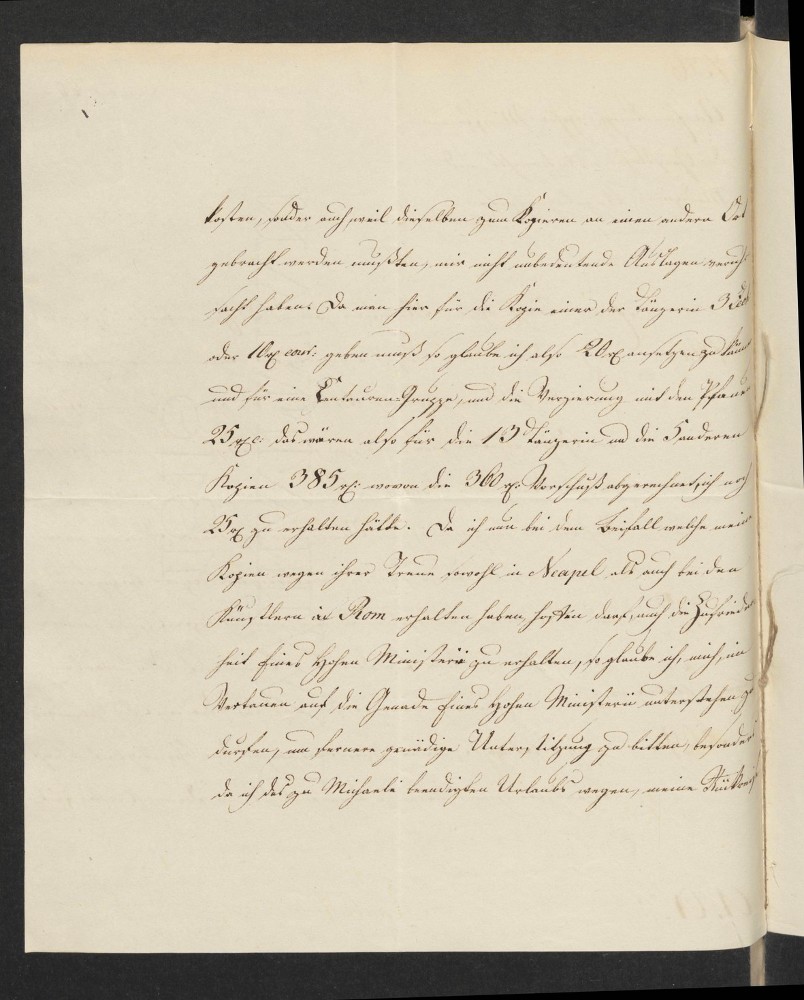 kosten, sonder auch weil dieselben zum Kopieren an einen andern Ort
gebracht werden mußten, mir nicht unbedeutende Auslagen verur-
sacht haben. Da man hier für die Kopie einer der Tänzerin 3
oder 10 rx cour: geben muß so glaube ich also 20 rx ansetzen zu
und für eine Centauren-Gruppe, und die Verzierung mit den
25 rx: das wären also für die 13 Tänzerin und die 5 anderen
Kopien 385 r: wovon die 360 r: Vorschuß abgerechnet, ich noch
25 rx zu erhalten hätte. Da ich nun bei dem Beifall welche mein
Kopien wegen ihrer Treue sowohl in Neapel als auch bei den
Künstlern in Rom erhalten haben, hoffen darf, auch die Zufrieden
heit Eines Hohen Ministerii zu erhalten, so glaube ich, mich, im
Vertauen auf die Genade Eines Hohen Ministerii unterstehen zu
durfen, um fernere gnädige Unterstützung zu bitten, besonders
da ich des zu Michaeli beendigten Urlaubs wegen, meine